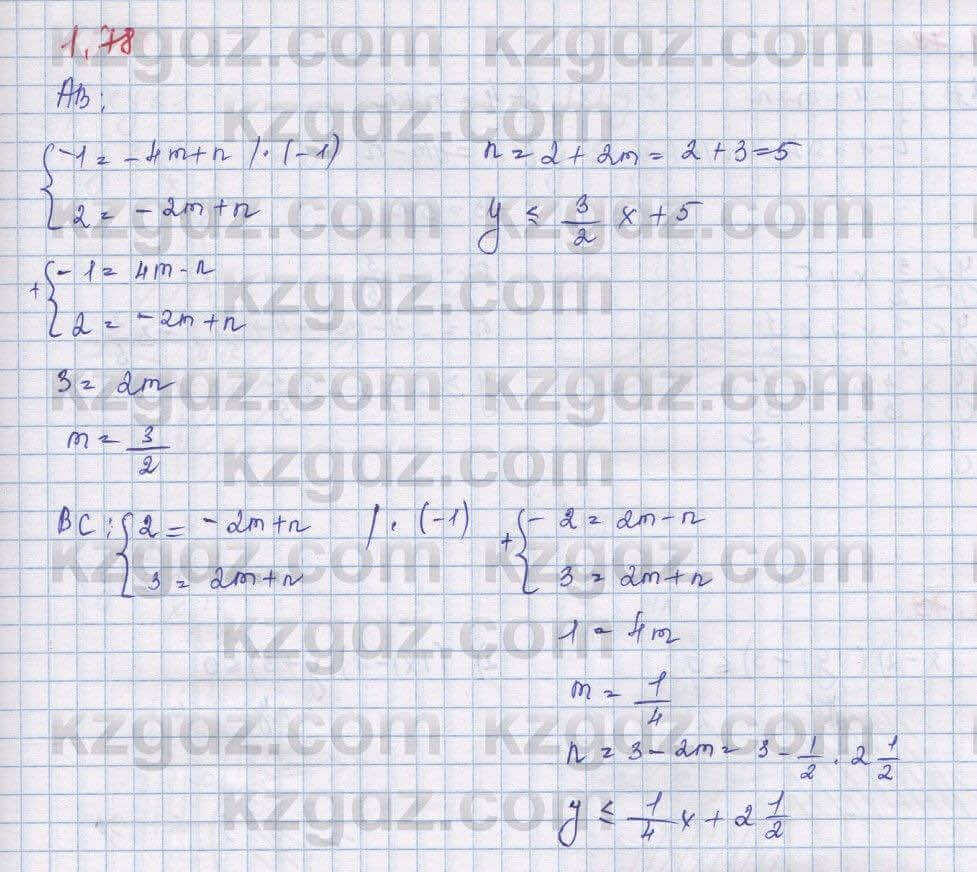 1.78
AB:
-1 = -4m+n /·(-1)
2 = -2m+n
+ -1 = 4m-n
2 = -2m+n
3 = 2m
m = 3/2
n = 2 + 2m = 2 + 3 = 5
y ≤ 3/2 x + 5
BC: 2 = -2m+n /·(-1)
3 = 2m+n
+ -2 = 2m-n
3 = 2m+n
1 = 4m
m = 1/4
n = 3 - 2m = 3 - 1/2 · 2 1/2
y ≤ 1/4 x + 2 1/2
kzgdz.com kzgdz.com
kzgdz.com
kzgdz.com kzgdz.com
kzgdz.com
kzgdz.com kzgdz.com
kzgdz.com
kzgdz.com kzgdz.com
kzgdz.com
kzgdz.com kzgdz.com
kzgdz.com